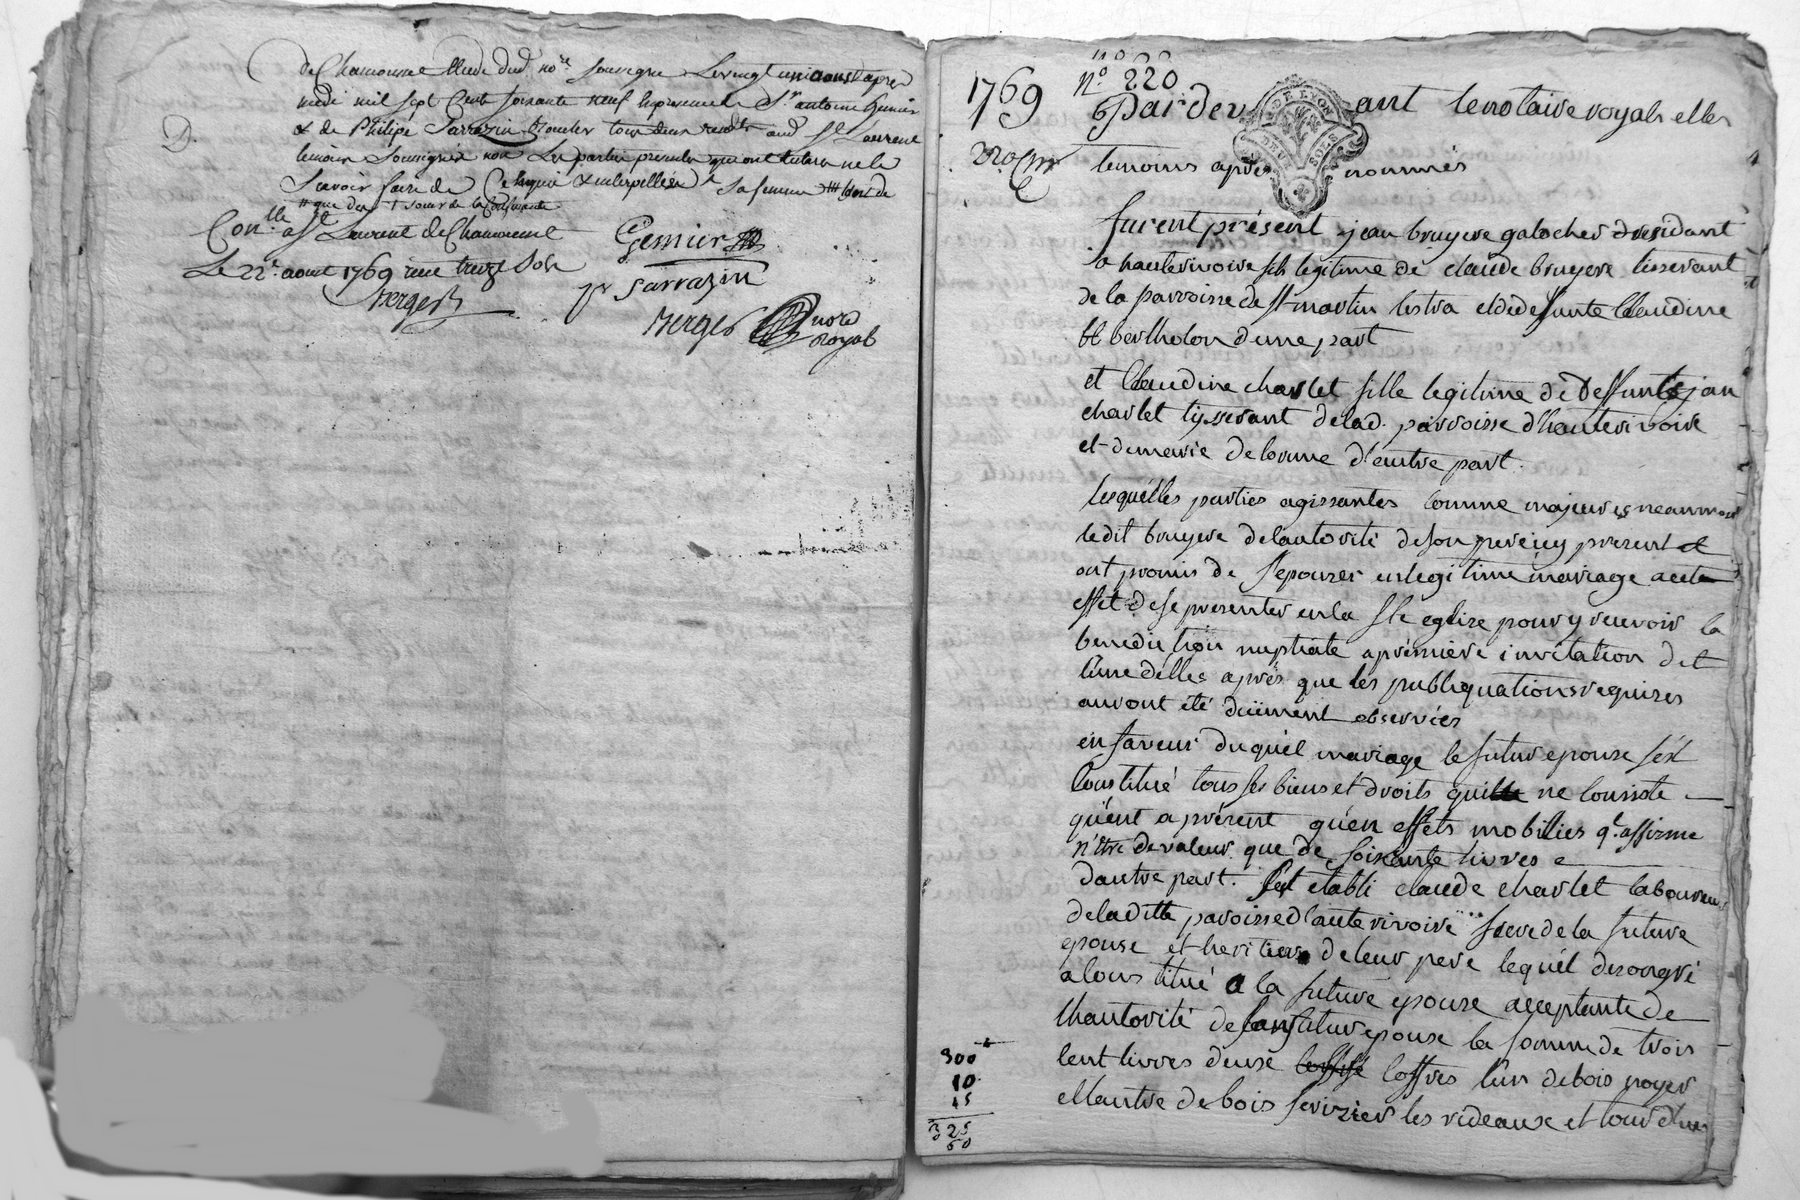 de Chamousset Etude dud. no.re soussigné Le vingt un aoust apres
midi mil sept Cents soixante neuf En presence de Sr antoine Gemier
& de Philipe Sarrazin tous deux aud. St Laurent
temoins Soussignés non Les parties presentes qui ont declaré ne le
Scavoir faire de Ce requis & interpellés
D.
Con.lle a St Laurent de Chamousset
Le 22e aout 1769 reçu treize Sols
Berger
Gemier
Sarrazin
Berger
nore
royal
1769
no 220
Par devant le notaire royal et les
DE LYON
DEUX SOLS
temoins après nommés
furent présent jean bruyere galocher residant
a hauterivoire fils legitime de claude bruyere tisserant
de la parroisse de St martin lestra et de deffunte Claudine
bertholon d'une part
et Claudine charlet fille legitime de deffunts jean
charlet tisserant de lad. parroisse d'hauterivoire
et de marie delorme d'autre part.
lesquelles parties agissantes comme majeures neanmoi
ledit bruyere de lautorité de son pere icy present et
ont promis de s'epouser en legitime mariage a cet
effet de se presenter en la Ste eglize pour y recevoir la
benediction nuptiale a premiere invitation de l
l'une d'elles après que les publiquations requises
auront été düement observées
en faveur duquel mariage le futur epoux s'est
Constitué tous ses biens et droits qui ne consiste
quent a présent qu'en effets mobilies q.l affirme
n'être de valeur que de soixante livres
dautre part. s'est etabli claude charlet laboureur
de laditte paroisse d'hauterivoire frere de la future
epouse et heritier de leur pere lequel de son gré
a constitué a la future epouse acceptante de
l'hautorité de son futur epoux la somme de trois
cent livres deux coffres l'un de bois noyer
et l'autre de bois serizier les rideaux et tour d'un
300
10
15
325
60